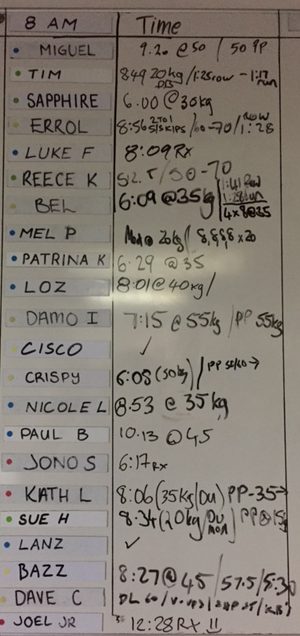 8 AM Time
MIGUEL 9.20 @ 50 / 50 PP
TIM 8.49 20kg / 1:25 row - 1:17 run
DB
SAPPHIRE 6.00 @ 30kg
ERROL 8:56 2 TO 1 S/SKIPS / 60-70 / 1:28 ROW
LUKE F 8:09 Rx
REECE K 52.5 / 50-70
BEL 6:09 @ 35kg 1:41 Row
4x8@35
MEL P 20kg / 8,8,8,8 x 20
PATRINA K 6:29 @ 35
LOZ 8:01 @ 40kg /
DAMO I 7:15 @ 55kg / PP 55kg
CISCO ✓
CRISPY 6:08 (50kg) / PP
NICOLE L 8:53 @ 35kg
PAUL B 10.13 @ 45
JONO S 6:17 RX
KATH L 8:06 (35kg/DU) PP-35→
SUE H 8:34 (20kg/DU
LANZ ✓
BAZZ 8:27 @ 45 / 57.5 / 5:30
DAVE C DL 60 /
JOEL JR 12:28 RX !!